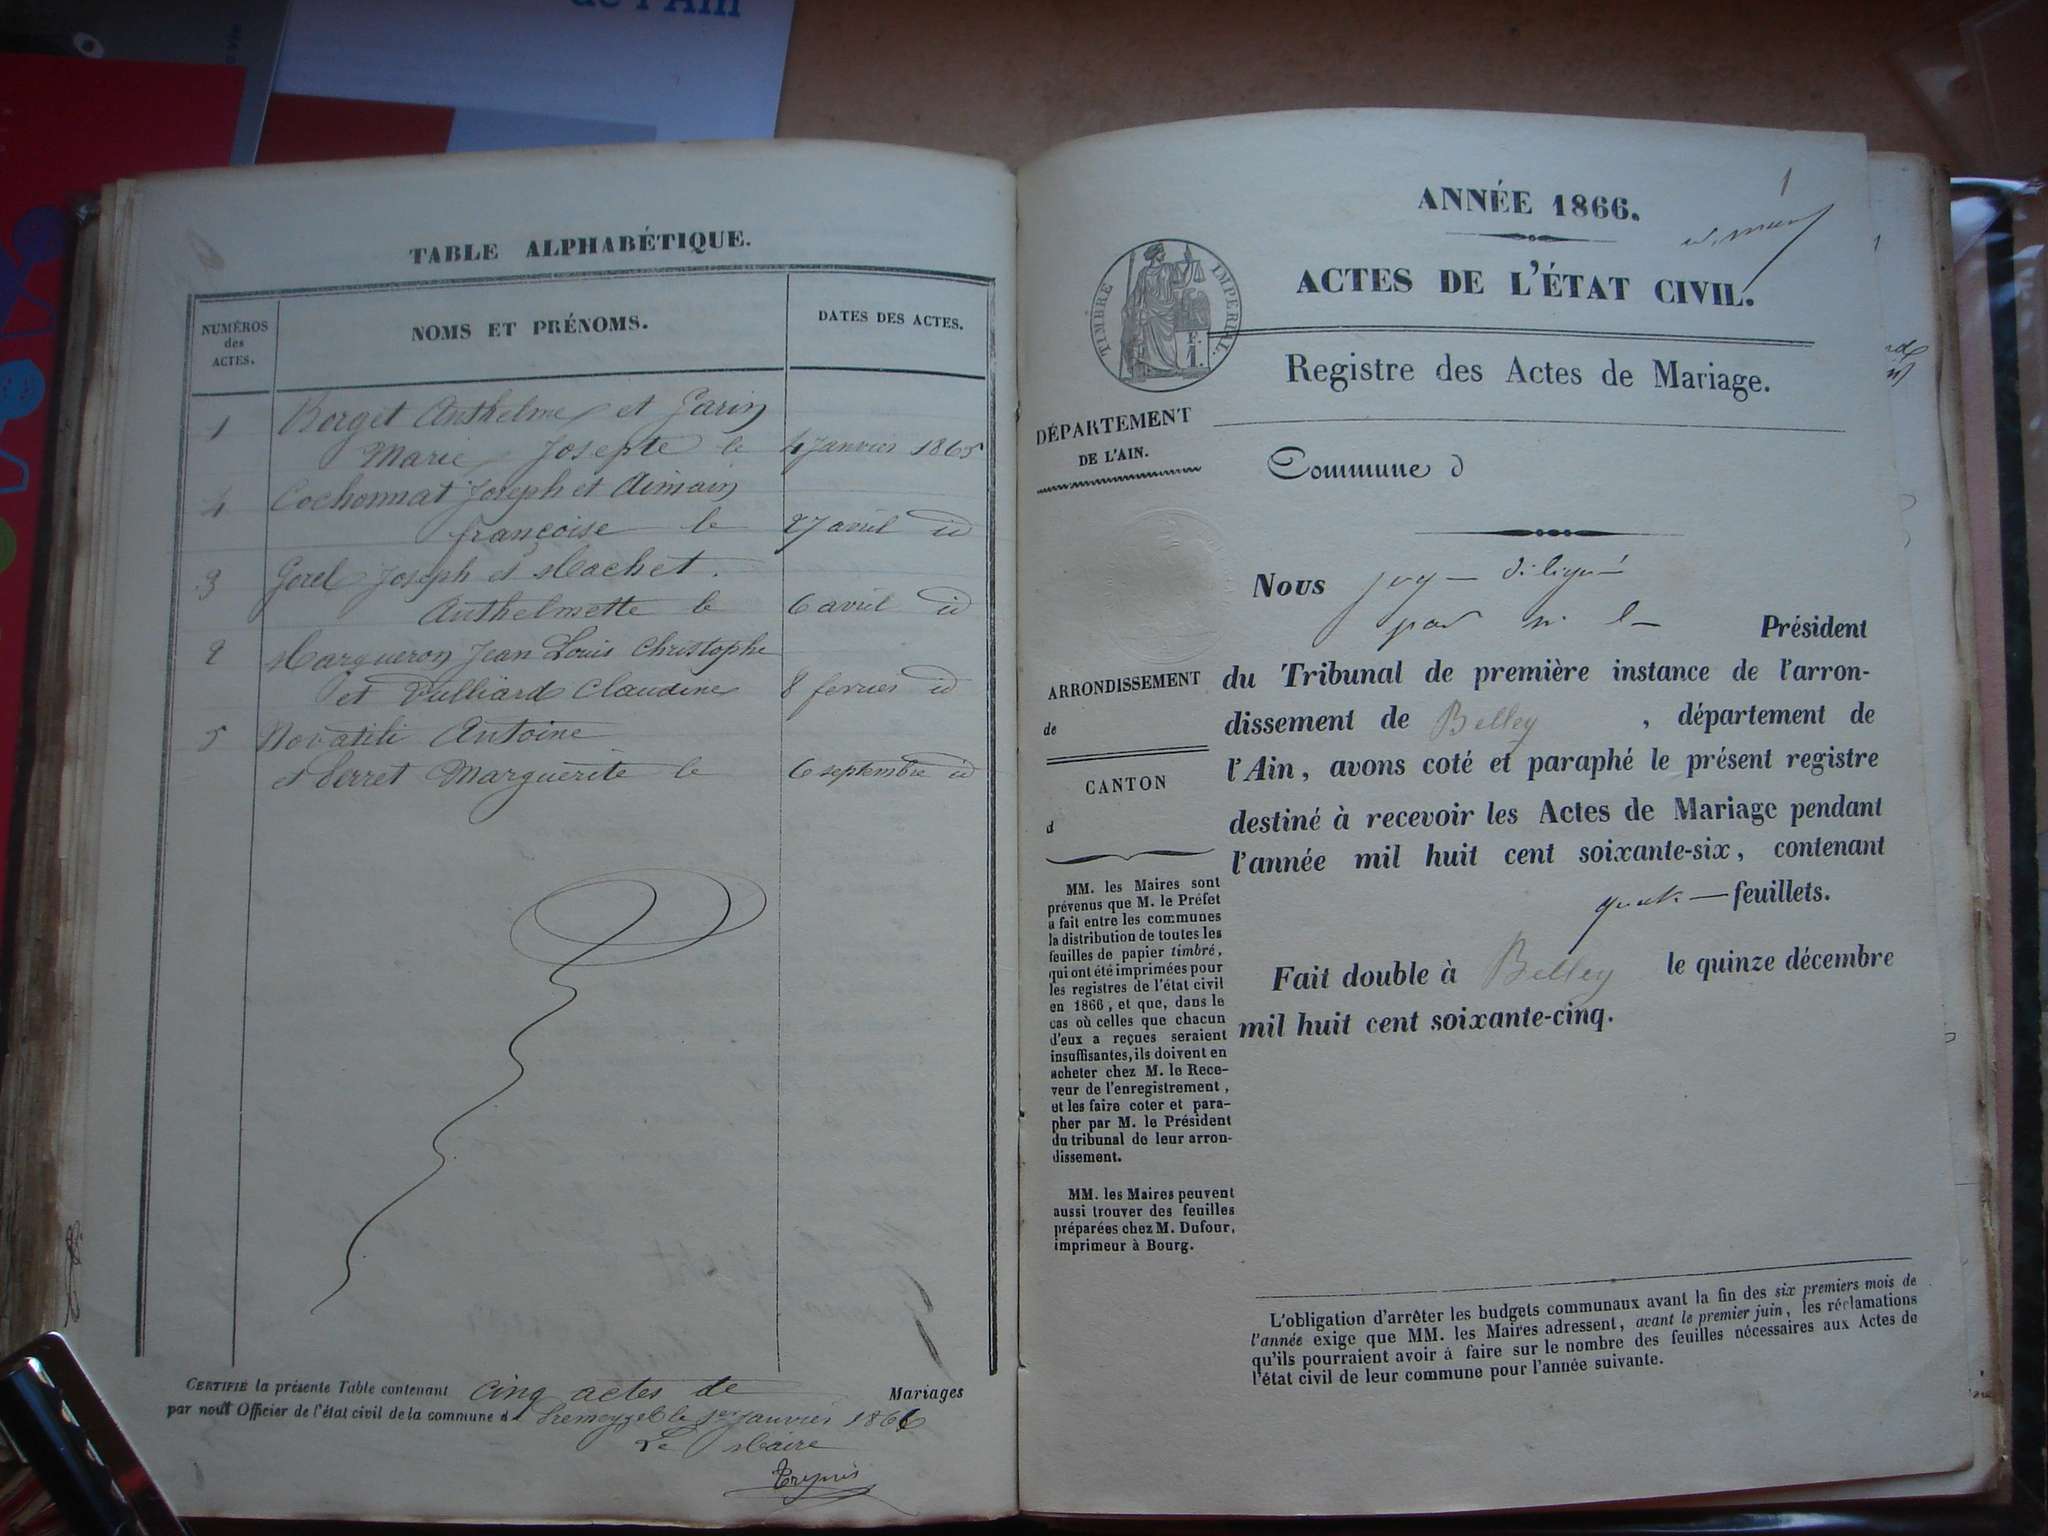 de l'Ain
TABLE ALPHABÉTIQUE.
NUMÉROS
des
ACTES.
NOMS ET PRÉNOMS.
DATES DES ACTES.
1 Borget Anthelme et Garin
Marie Josepte le 4 Janvier 1865
4 Cochonnat Joseph et Aimain
françoise le 27 avril id
3 Gorel Joseph et Machet.
Anthelmette le 6 avril id
2 Margueron Jean Louis Christophe
et Vulliard Claudine 8 fevrier id
5 Novatili Antoine
et Perret Marguerite le 6 septembre id
CERTIFIÉ la présente Table contenant cinq actes de Mariages
par nous Officier de l'état civil de la commune de le 1er Janvier 1866
Le Maire
1
ANNÉE 1866.
ACTES DE L'ÉTAT CIVIL.
TIMBRE IMPERIAL.
F.
1.
Registre des Actes de Mariage.
DÉPARTEMENT
DE L'AIN.
Commune d
Nous juge délégué
par M. le Président
du Tribunal de première instance de l'arron-
dissement de Belley , département de
l'Ain, avons coté et paraphé le présent registre
destiné à recevoir les Actes de Mariage pendant
l'année mil huit cent soixante-six, contenant
quatre feuillets.
Fait double à Belley le quinze décembre
mil huit cent soixante-cinq.
ARRONDISSEMENT
de
CANTON
d
MM. les Maires sont
prévenus que M. le Préfet
a fait entre les communes
la distribution de toutes les
feuilles de papier timbré,
qui ont été imprimées pour
les registres de l'état civil
en 1866, et que, dans le
cas où celles que chacun
d'eux a reçues seraient
insuffisantes, ils doivent en
acheter chez M. le Rece-
veur de l'enregistrement,
et les faire coter et para-
pher par M. le Président
du tribunal de leur arron-
dissement.
MM. les Maires peuvent
aussi trouver des feuilles
préparées chez M. Dufour,
imprimeur à Bourg.
L'obligation d'arrêter les budgets communaux avant la fin des six premiers mois de
l'année exige que MM. les Maires adressent, avant le premier juin, les réclamations
qu'ils pourraient avoir à faire sur le nombre des feuilles nécessaires aux Actes de
l'état civil de leur commune pour l'année suivante.